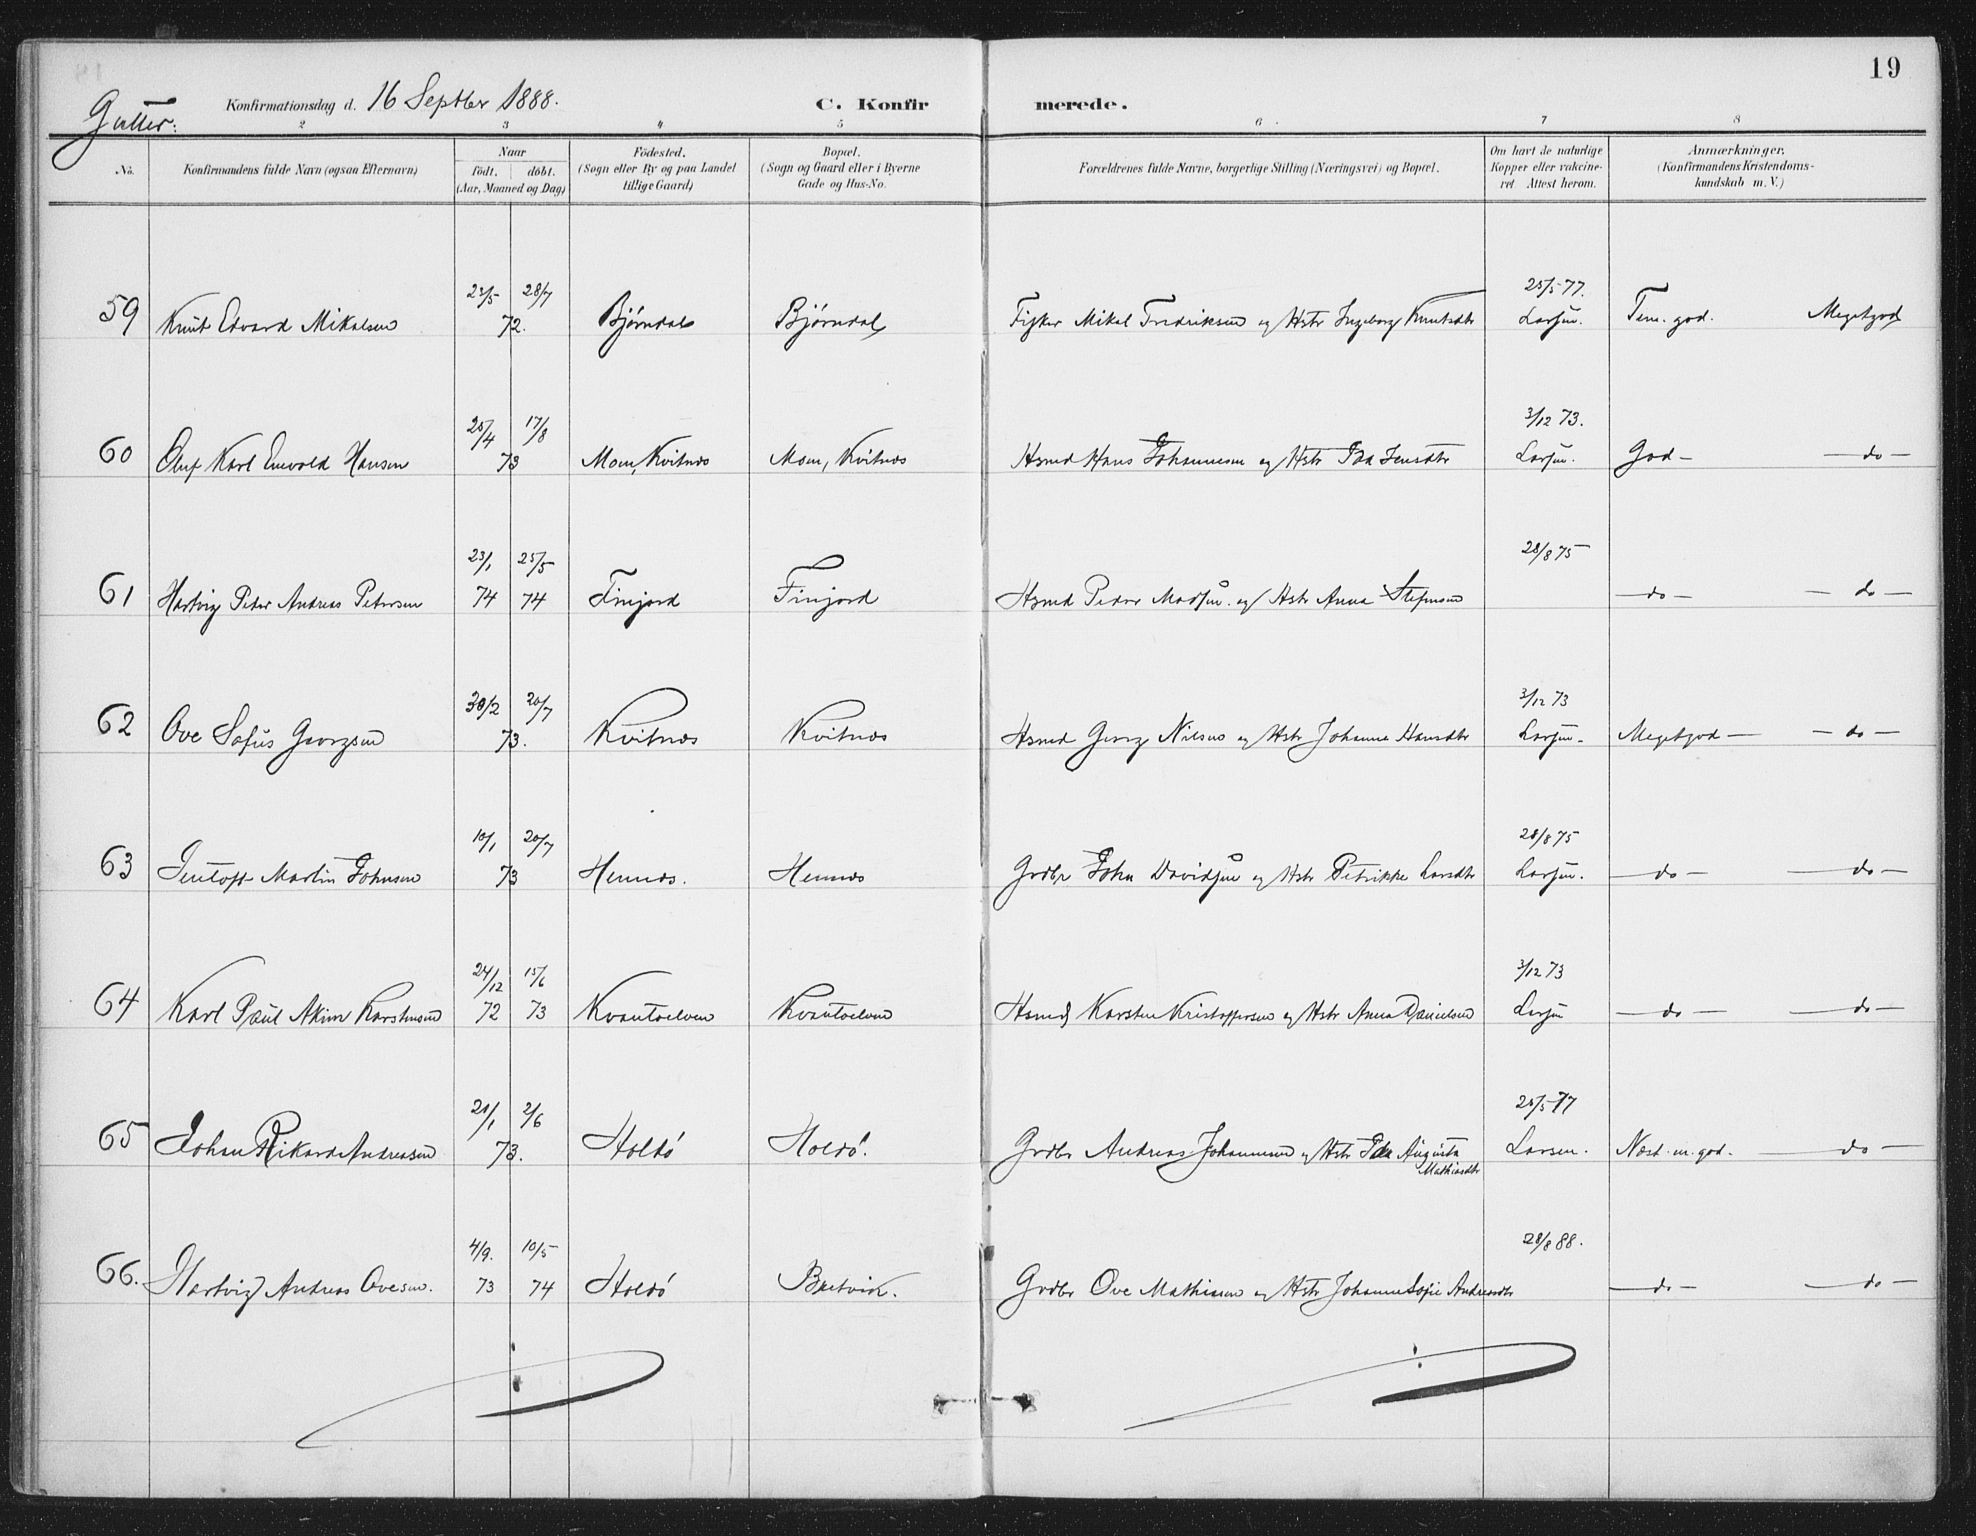 19
Gutter: Konfirmationsdag d. 16 Septbr 1888. C. Konfirmerede.
2 3 4 5 6 7 8
No. Konfirmandens fulde Navn (ogsaa Efternavn) Naar födt. döbt. (Aar, Maaned og Dag) Födested. (Sogn eller By og paa Landet tillige Gaard) Bopæl. (Sogn og Gaard eller i Byerne Gade og Hus-No. Forældrenes fulde Navne, borgerlige Stilling (Næringsvei) og Bopæl. Om havt de naturlige Kopper eller vakcineret Attest herom. Anmærkninger. (Konfirmandens Kristendomskundskab m. V.)
23/5 28/7 25/5 77.
59 Knut Edvard Mikalsen 72. Bjørndal Bjørndal Fisker Mikal Fredriksen og Hstr Ingeborg Knutsdtr Larsen. Tem. god. Megetgod
20/4 17/8 3/12 73.
60 Oluf Karl Enevold Hansen 73 Moen, Kvitnæs Moen, Kvitnæs Hsmd Hans Johannesen og Hstr Ida Jensdtr Larsen. God - - do -
23/1 25/5 28/8 75
61 Hartvig Peder Andreas Petersen 74 74 Finjord Finjord Hsmd Peder Madsen og Hstr Anna - do - - do -
30/2 20/7 3/12 73
62 Ove Sofus Georgsen 73. Kvitnæs Kvitnæs Hsmd Georg Nilsen og Hstr Johanna Hansdtr Larsen - Megetgod - - do -
10/1 20/7 28/8 75
63 Jentoft Martin Johnsen 73 Hennæs. Hennæs Grdbr John Davidsen og Hstr Petrikke Larsdtr Larsen. - do - - do -
24/12 15/6 3/12 73
64 Karl Paul Akim Karstensen 72 73 Kvantoelven Kvantoelven Hsmd Karsten Kristoffersen og Hstr Anna Danielsen Larsen - do - - do -
21/1 2/6 25/5 77
65 Johan Rikard Andreasen 73. Holdö Holdö. Grdbr Andreas Johannesen og Hstr Ida Augusta Larsen. Næst. m. god. - do -
Mathiasdtr
4/9. 10/5 28/8 88.
66. Hartvig Andreas Ovesen. 73 74 Holdö Bretvik. Grdbr Ove Mathisen og Hstr Johanna Sofie Andreasdtr - do - - do -